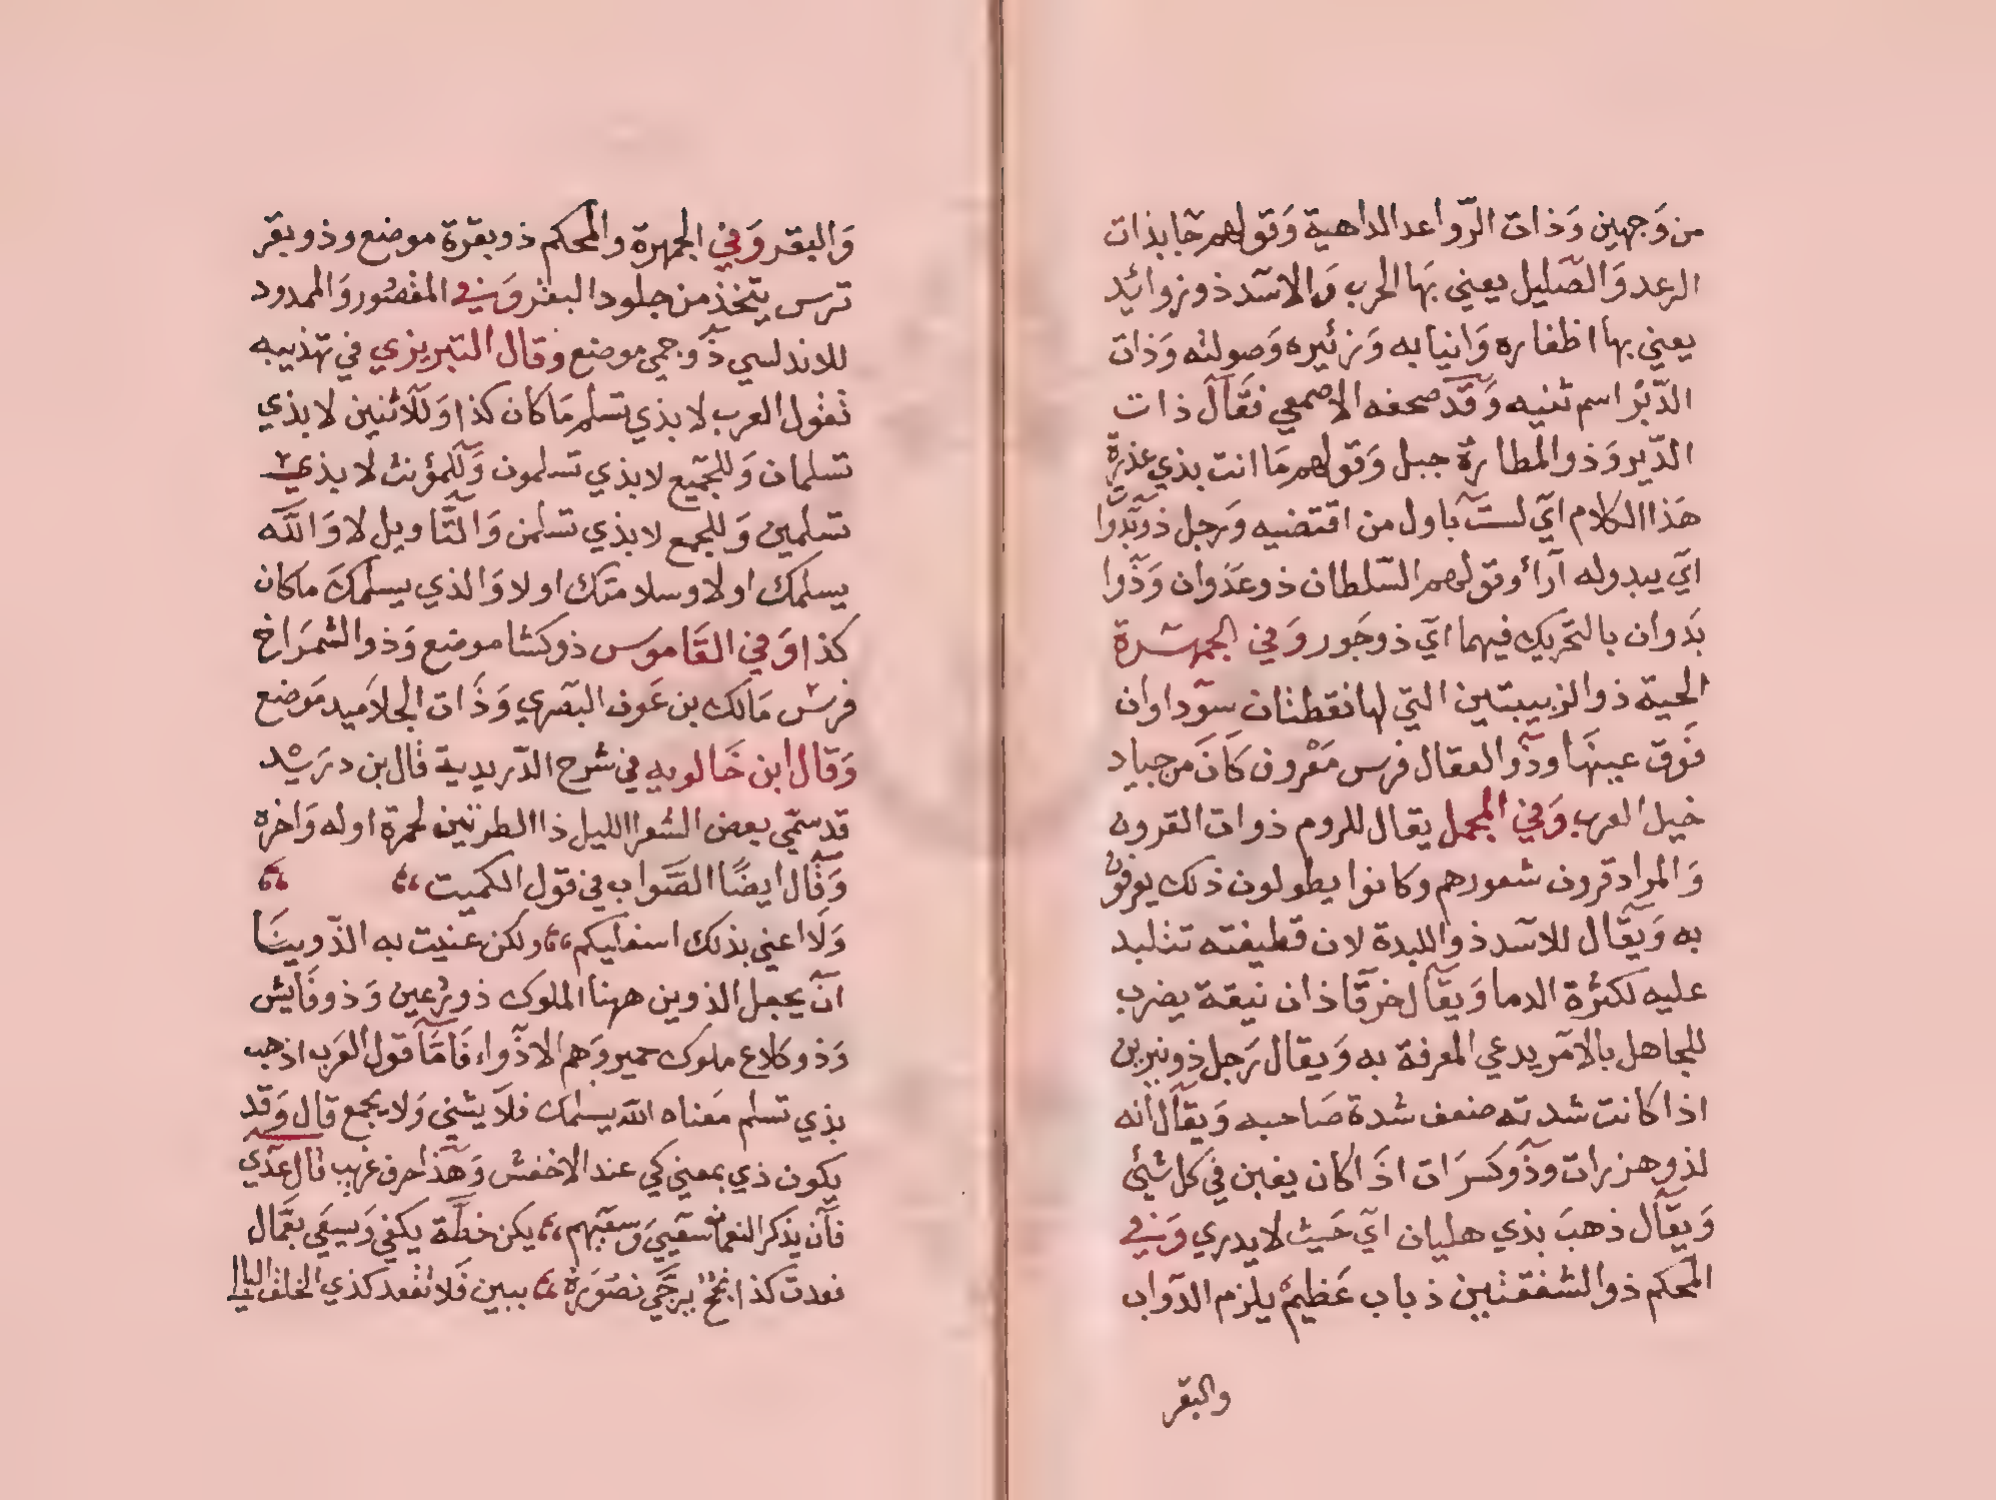 من وَجهين وَذات الرّواعد الداهية وَقولهم جَا بذات
الرعد وَالصّليل يعني بهَا الحرب وَالاسَد ذو زوائد
يعني بها اظفاره وَانيابه وَزئيره وَصولته وَذات
الدّبْر اسم ثنيه وَقَد صحفه الاصمعي فقَال ذات
الدّير وَذو المطارة جبل وَقولهم مَا انت بذي عذرة
هَذا الكلام ايَ لستَ باول من اقتضبه وَرجل ذو بَدوات
ايَ يبدو له آراء وقولهم السّلطان ذو عَدَوان وَذَوا
بدَوان بالتحريك فيهما ايَ ذو جَور وَفي الجمهرة
الحية ذو الزبيبتين التي لها نقطتان سَوداوان
فَوق عينهَا وذو العقال فرس مَعْروف كَانَ من جياد
خيل العرب وَفي المجمل يقال للروم ذوات القرون
وَالمراد قرون شعورهم وكانوا يطولون ذلك يعرفون
به وَيقَال للاسَد ذو اللبدة لان قطيفته تتلبد
عليه لكثرة الدما وَيقَال خرقَا ذات نيقة يضرب
للجاهل بالامَر يدعي المعرفة به وَيقال رَجل ذو نيربن
اذا كانت شدته ضعف شدة صَاحبه وَيقَال انه
لذو هزرات وذَو كسَرَات اذَا كان يغبن في كل شيَئ
وَيقَال ذهبَ بذي هليان ايَ حَيث لا يدري وَفي
المحكم ذو الشفقتين ذباب عَظيم يلزم الدوَاب
والبقر
وَالبقر وَفي الجمهرة والمحكم ذو بقرة موضع وذو بقر
ترس يتخذ من جلود البقر وَفي المقصُور وَالممدود
للاندلسي ذَو حمى موضع وقال التبريزي في تهذيبه
تقول العرب لا بذي تسلم مَا كان كذا وَللاثنين لا بذي
تسلمان وَللجَميع لا بذي تسلمون وَللمؤنث لا بذي
تسلمين وَللجمع لا بذي تسلمن وَالتَّاويل لا وَاللَّه
يسلمك او لا وسلامتك او لا وَالذي يسلمكَ ما كان
كذا وَفي القَاموَس ذو كشا موضع وَذو الشمرَاخ
فرسَ مَالك بن عَوف البصَري وَذَات الجلاَميد مَوضع
وَقال ابن خَالويه في شرح الدّريدية قال بن دريد
قد سمّي بعض الشعرا الليل ذا الطرتين لحمرة اوله وَاخره
وَقَال ايضًا الصَّواب في قول الكميت
وَلَا اعني بذلك اسفليكم ولكن عنيت به الذّوينَا
انَّ يجعل الذوين ههنا الملوك ذو رعين وَذو فَايش
وَذو كلاع ملوك حمير وَهم الاذَواء فَامَّا قول العَرب اذهب
بذي تسلم مَعناه اللّه يسلمك فلاَ يثنى وَلا يجمع قال وَقد
يكون ذي بمعنى كي عند الاخفش وَهَذا حرف غريب قال عَدي
فاَن يذكر النعمان سَعيي وَسعيَهم يكن خطَّة يكفي وَيسعَى بعَمال
فعدت كذا يرجَي نصوَره يبين فَلا تقعد كذي الخلف البالي